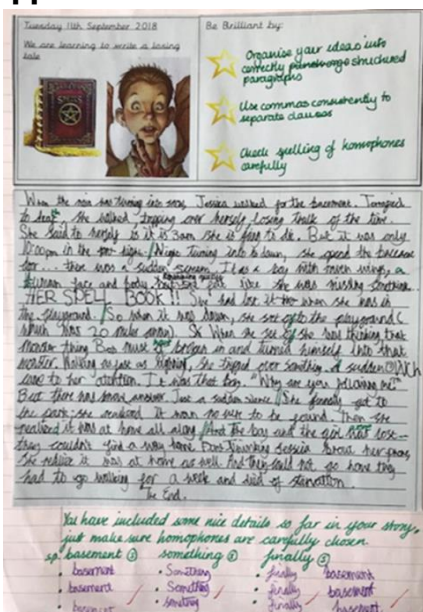 Tuesday 11th September 2018
We are learning to write a losing tale
Be Brilliant by:
Organise your ideas into
correctly structured
paragraphs
Use commas consistently to
separate clauses
Check spelling of homophones
carefully
When the rain was turning into snow, Jessica walked for the basement.
to death, she walked tripping over herself losing track of the time.
She said to herself is it is 3am she is going to die. But it was only
10:00pm in the night. Night turning into dawn, she opend the
door... there was a sudden scream. It was a boy with raven wings, a
human face and body but felt like she was missing something.
HER SPELL BOOK!! She had lost it when she was in
the playground. So when it was dawn, she set off to the playground (
which was 20 miles away). When she she was thinking that
monster thing must of broken in and turned himself into that
monster. Walking as fast as lightning, she tripped over something. A sudden
came to her attention. It was that boy. "Why are you following me?"
But there was know answer. Just a sudden silence. She finally got to
the park; she realised it was no were to be found. Then she
realised it was at home all along. And the boy and the girl was lose...
they couldn't find a way home. Jessica her phone,
she realise it was at home as well. And they could not go home they
had to go walking for a week and died of starvation.
The End.
You have included some nice details so far in your story,
just make sure homophones are carefully chosen.
sp. basement ① something ② finally ③
basement Something finally basement
basement Something finally basement
basement something finally basement